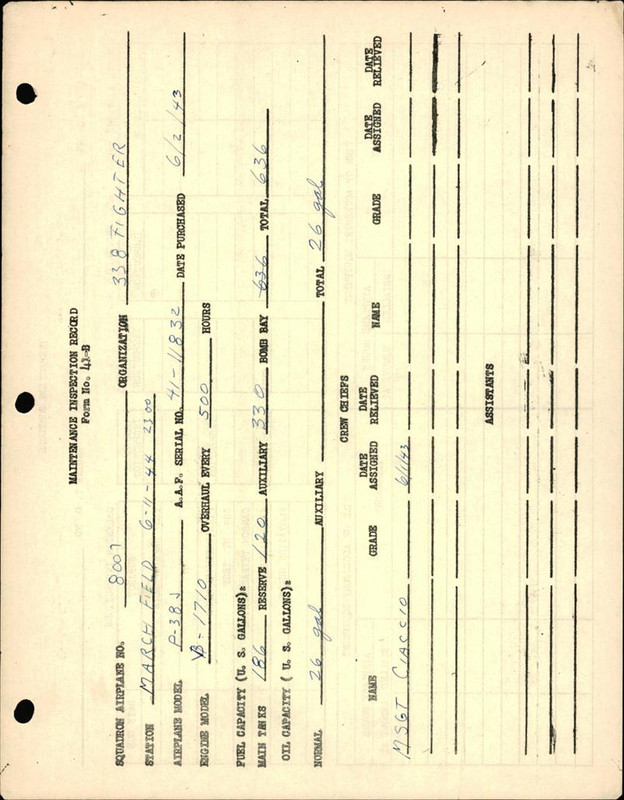 MAINTENANCE INSPECTION RECORD
Form No. 41-B
SQUADRON AIRPLANE NO. 8007 ORGANIZATION 338 FIGHTER
STATION MARCH FIELD 6-11-44 2300
AIRPLANE MODEL P-38J A.A.F. SERIAL NO. 41-11832 DATE PURCHASED 6/2/43
ENGINE MODEL V-1710 OVERHAUL EVERY 500 HOURS
FUEL CAPACITY (U. S. GALLONS):
MAIN TANKS 186 RESERVE 120 AUXILIARY 330 BOMB BAY 636 TOTAL 636
OIL CAPACITY ( U. S. GALLONS):
NORMAL 26 gal AUXILIARY TOTAL 26 gal
CREW CHIEFS
NAME GRADE DATE ASSIGNED DATE RELIEVED NAME GRADE DATE ASSIGNED DATE RELIEVED
MSGT CIACCIO 6/1/43
ASSISTANTS